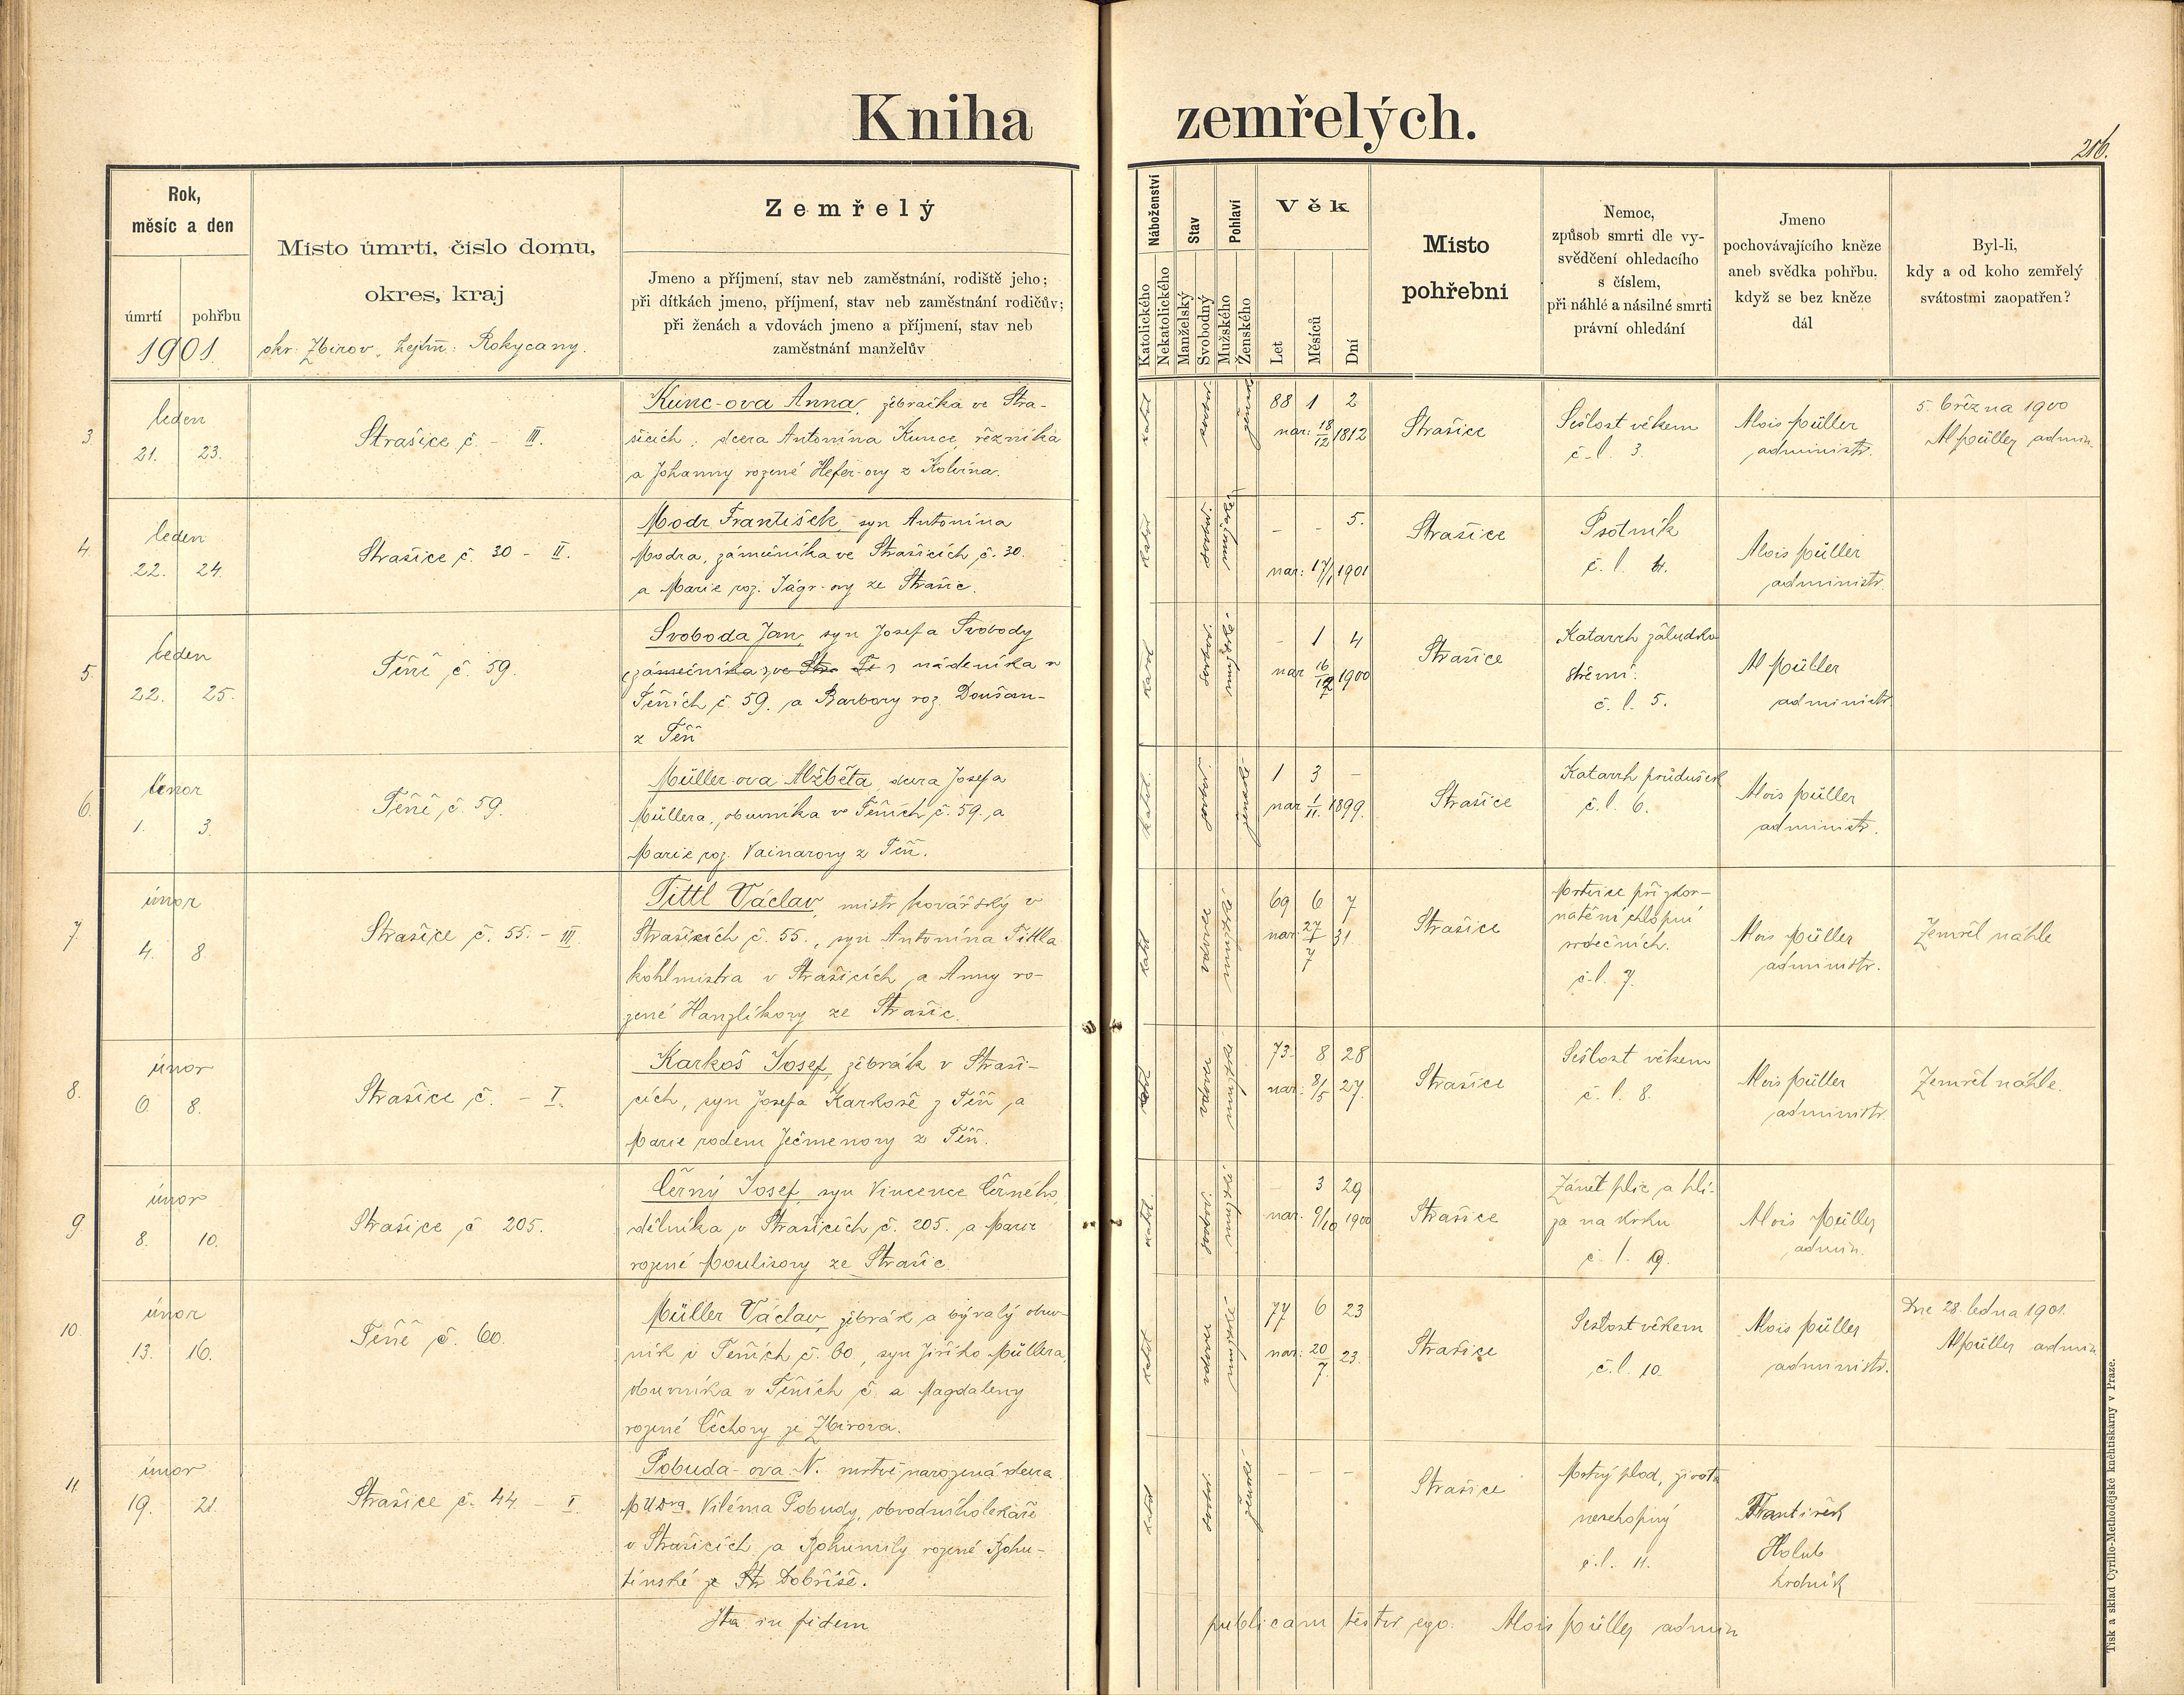 Kniha zemřelých.
216.
Rok,
měsíc a den
úmrtí pohřbu
1901.
Místo úmrtí, číslo domu,
okres, kraj
okr. Zbirov, hejtm: Rokycany.
Zemřelý
Jmeno a příjmení, stav neb zaměstnání, rodiště jeho;
při dítkách jmeno, příjmení, stav neb zaměstnání rodičův;
při ženách a vdovách jmeno a příjmení, stav neb
zaměstnání manželův
Náboženství
Katolického
Nekatolického
Stav
Manželský
Svobodný
Pohlaví
Mužského
Ženského
Věk
Let
Měsíců
Dní
Místo
pohřební
Nemoc,
způsob smrti dle vy-
svědčení ohledacího
s číslem,
při náhlé a násilné smrti
právní ohledání
Jmeno
pochovávajícího kněze
aneb svědka pohřbu.
když se bez kněze
dál
Byl-li,
kdy a od koho zemřelý
svátostmi zaopatřen?
3
leden
21. 23.
Strašice č. - III.
Kunc-ova Anna, žebračka ve Stra-
šicích, dcera Antonína Kunce, řezníka
a Johanny rozené Hefer-ovy z Kolvína.
katol. svobod. ženské
88 1 2
nar: 18/12 1812
Strašice
Sešlost věkem
č. l. 3.
Alois Müller
administr.
5. března 1900
Al Müller admin.
4
leden
22. 24.
Strašice č. 30 - II.
Modr František, syn Antonína
Modra, zámečníka ve Strašicích č. 30.
a Marie roz. Jágr-ovy ze Strašic.
katol. svobod. mužské
- - 5.
nar: 17/1 1901
Strašice
Psotník
č. l. 4.
Alois Müller
administr.
5.
leden
22. 25.
Těně č. 59.
Svoboda Jan, syn Josefa Svobody
(zámečníka) ve Stra Te nádeníka v
Těních č. 59. a Barbory roz. Doušam-
z Těň
katol. svobod. mužské
- 1 4
nar 16/12 1900
Strašice
Katarrh žaludko
střevní.
č. l. 5.
Al Müller
administr.
6.
únor
1. 3.
Těně č. 59.
Müller-ova Alžběta, dcera Josefa
Müllera, obuvníka v Těních č. 59. a
Marie roz. Vainarovy z Těň.
katol. svobod. ženské
1 3 -
nar 1/11. 1899.
Strašice
Katarrh průdušek
č. l. 6.
Alois Müller
administr.
7.
únor
4. 8.
Strašice č. 55. - III.
Tittl Václav, mistr kovářský v
Strašicích č. 55., syn Antonína Tittla
kohlmistra v Strašicích a Anny ro-
zené Hanzlíkovy ze Strašic.
katol. vdovec mužské
69 6 7
nar. 27/7 31.
Strašice
Mrtvice při zkor-
natění chlopní
srdečních.
č. l. 7.
Alois Müller
administr.
Zemřel náhle
8.
únor
6. 8.
Strašice č. - I.
Karkoš Josef, žebrák v Straši-
cích, syn Josefa Karkoše z Těň a
Marie rodem Ječmenovy z Těň.
katol. vdovec mužské
73 8 28
nar. 8/5 27.
Strašice
Sešlost věkem
č. l. 8.
Alois Müller
administr.
Zemřel náhle.
9
únor
8. 10.
Strašice č 205.
Černý Josef, syn Vincence Černého,
dělníka v Strašicích č. 205. a Marie
rozené Moulisovy ze Strašic
katol. svobod. mužské
- 3 29
nar. 9/10 1900
Strašice
Zánět plic a hlí-
za na krku
č. l. 9.
Alois Müller
admin.
10.
únor
13. 16.
Těně č. 60.
Müller Václav, žebrák a bývalý obuv-
ník v Těních č. 60., syn Jiřího Müllera,
obuvníka v Těních č. a Magdaleny
rozené Čechovy ze Zbirova.
katol. vdovec mužské
77 6 23
nar: 20/7. 23.
Strašice
Sešlost věkem
č. l. 10.
Alois Müller
administr.
Dne 28. ledna 1901.
Al Müller admin
11
únor
19. 21.
Strašice č. 44. - I.
Pobuda-ova N. mrtvě narozená dcera
MUDra. Viléma Pobudy, obvodního lekaře
v Strašicích a Bohumily rozené Bohu-
tínské ze Str Dobříše.
katol. svobod. ženské
- - -
Strašice
Mrtvý plod, života
neschopný
č. l. 11.
František
Holub
hrobník
Ita in fidem publicam testor ego. Alois Müller admin
Tisk a sklad Cyrillo-Methodějské knihtiskárny v Praze.